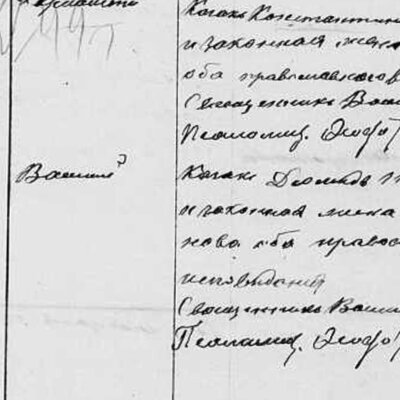 Казакъ Константинъ
и законная жена
оба православного
Священникъ Васи
Псаломщ. Феофо
Василiй
Казакъ Диомидъ
и законная жена
нова оба правос
исповѣданiя
Священникъ Васил
Псаломщ. Феофо